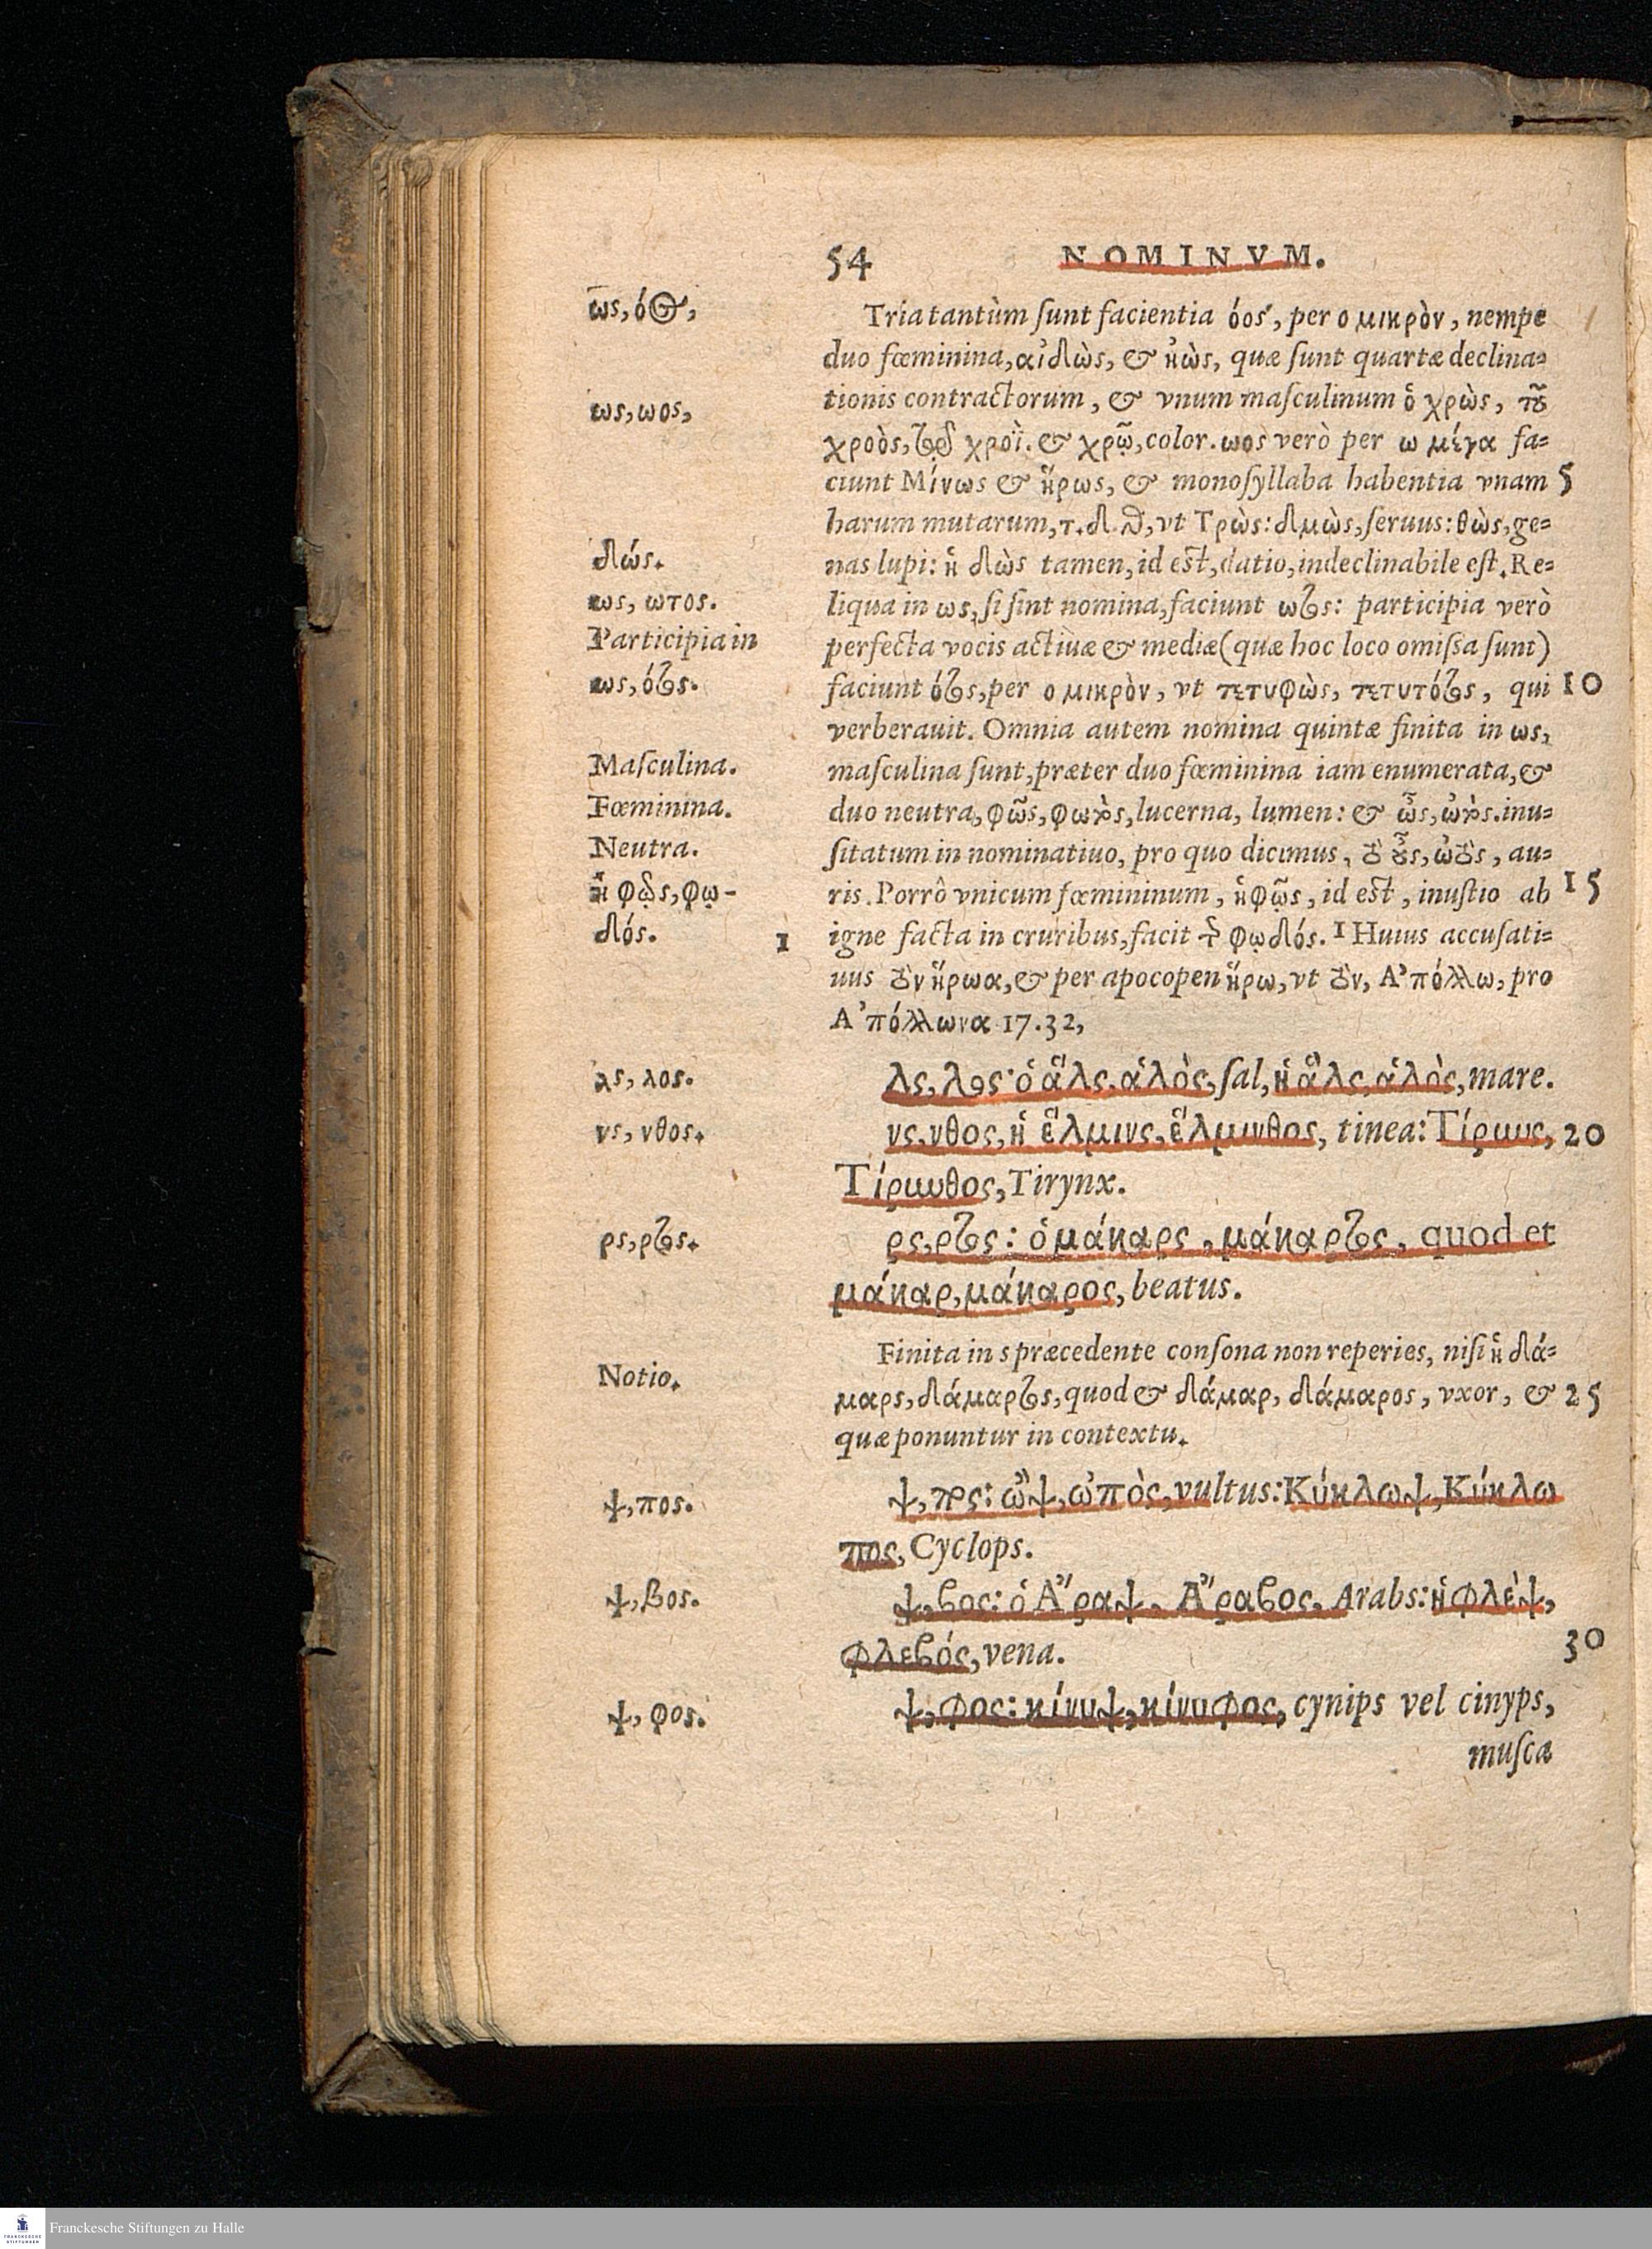 54 NOMINVM.
ως, όος,
Tria tantùm ſunt facientia όος, per ο μικρὸν, nempe
duo fœminina, αἰδὼς, & ἠὼς, quæ ſunt quartæ declina=
ως, ωος,
tionis contractorum, & vnum maſculinum ὁ χρὼς, τοῦ
χροὸς, τῷ χροῒ. & χρῷ, color. ωος verò per ω μέγα fa=
ciunt Μίνως & ἥρως, & monoſyllaba habentia vnam 5
harum mutarum, τ. δ. θ, vt Τρὼς: δμὼς, ſeruus: θὼς, ge=
δώς.
nas lupi: ἡ δὼς tamen, id est, datio, indeclinabile eſt. Re=
ως, ωτος.
liqua in ως, ſi ſint nomina, faciunt ωτος: participia verò
Participia in
perfecta vocis actiuæ & mediæ (quæ hoc loco omiſſa ſunt)
ως, ότος.
faciunt ότος, per ο μικρὸν, vt τετυφὼς, τετυτότος, qui 10
verberauit. Omnia autem nomina quintæ finita in ως,
Maſculina.
maſculina ſunt, præter duo fœminina iam enumerata, &
Fœminina.
duo neutra, φῶς, φωτὸς, lucerna, lumen: & ὦς, ὠτὸς. inu=
Neutra.
ſitatum in nominatiuo, pro quo dicimus, τὸ οὖς, ὠτὸς, au=
ἡ φῲς, φῳ-
ris. Porrò vnicum fœmininum, ἡ φῷς, id est, inuſtio ab 15
δός. 1
igne facta in cruribus, facit τῆς φῳδός. 1 Huius accuſati=
uus τὸν ἥρωα, & per apocopen ἥρω, vt τὸν, Ἀπόλλω, pro
Ἀπόλλωνα 17.32,
λς, λος.
λς, λος· ὁ ἅλς, ἁλὸς, ſal, ἡ ἅλς, ἁλὸς, mare.
νς, νθος.
νς, νθος, ἡ ἕλμινς, ἕλμινθος, tinea: Τίρυνς, 20
Τίρυνθος, Tirynx.
ρς, ρτος.
ρς, ρτος: ὁ μάκαρς, μάκαρτος, quod et
μάκαρ, μάκαρος, beatus.
Finita in s præcedente conſona non reperies, niſi ἡ δά=
Notio.
μαρς, δάμαρτος, quod & δάμαρ, δάμαρος, vxor, & 25
quæ ponuntur in contextu.
ψ, πος.
ψ, πος: ὢψ, ὠπὸς, vultus: Κύκλωψ, Κύκλω
πος, Cyclops.
ψ, βος.
ψ, βος: ὁ Ἄραψ, Ἄραβος, Arabs: ἡ φλὲψ,
φλεβός, vena. 30
ψ, φος.
ψ, φος: κίνυψ, κίνυφος, cynips vel cinyps,
muſca
Franckesche Stiftungen zu Halle
FRANCKESCHE
STIFTUNGEN